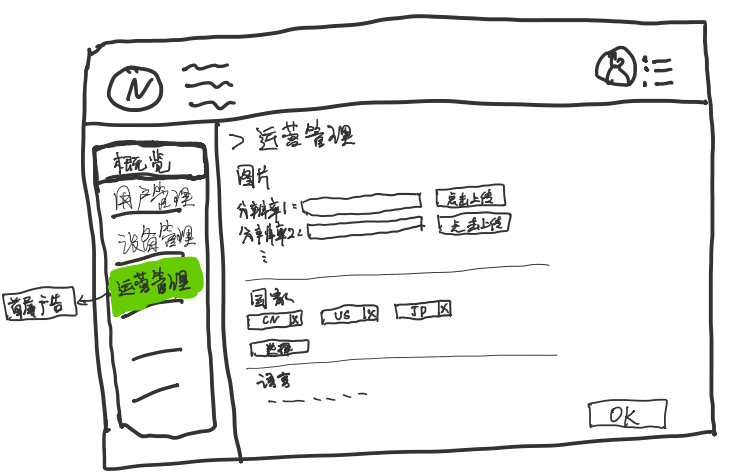 N
> 运营管理
概览
用户管理
设备管理
运营管理
首屏广告
图片
分辨率1:
点击上传
分辨率2:
点击上传
国家
CN X
US X
JP X
选择
语言
OK